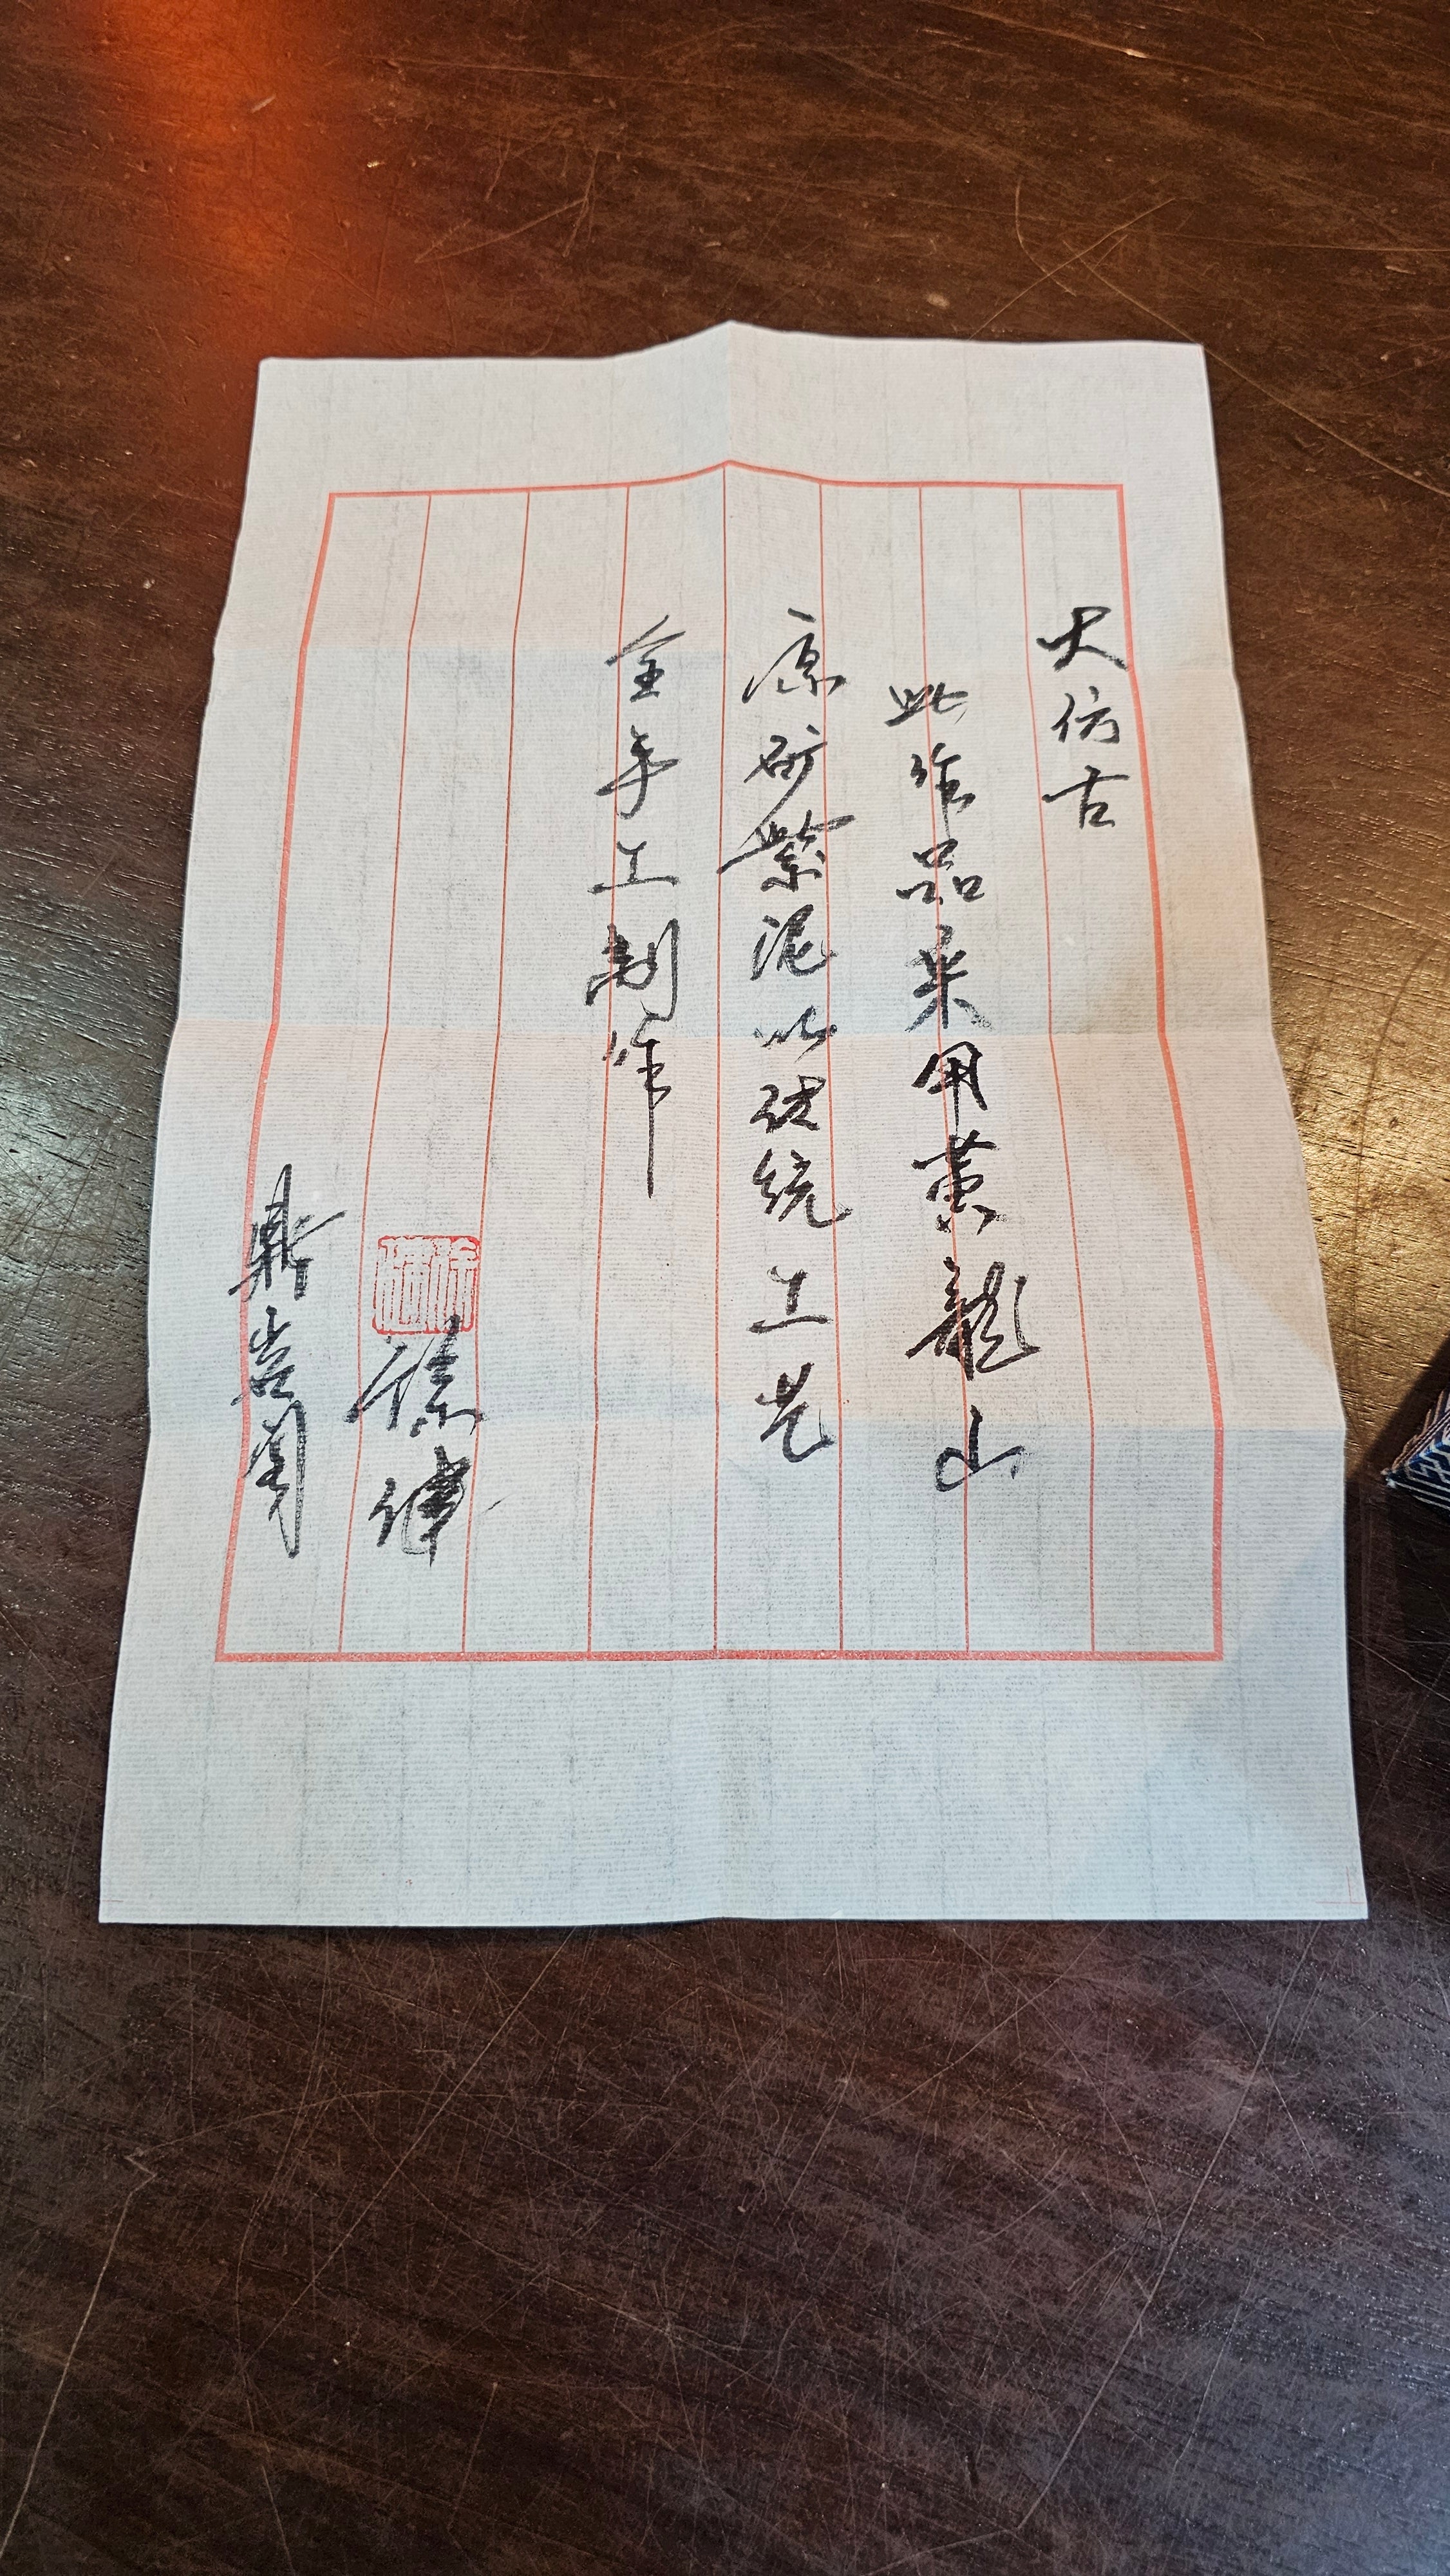 大仿古
此作品采用黄龍山
原矿紫泥以传统工艺
全手工制作
徐伟